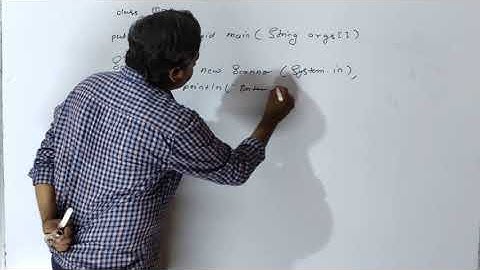 class
pub id main ( String args[])
S new Scanner (System.in),
println( " Enter